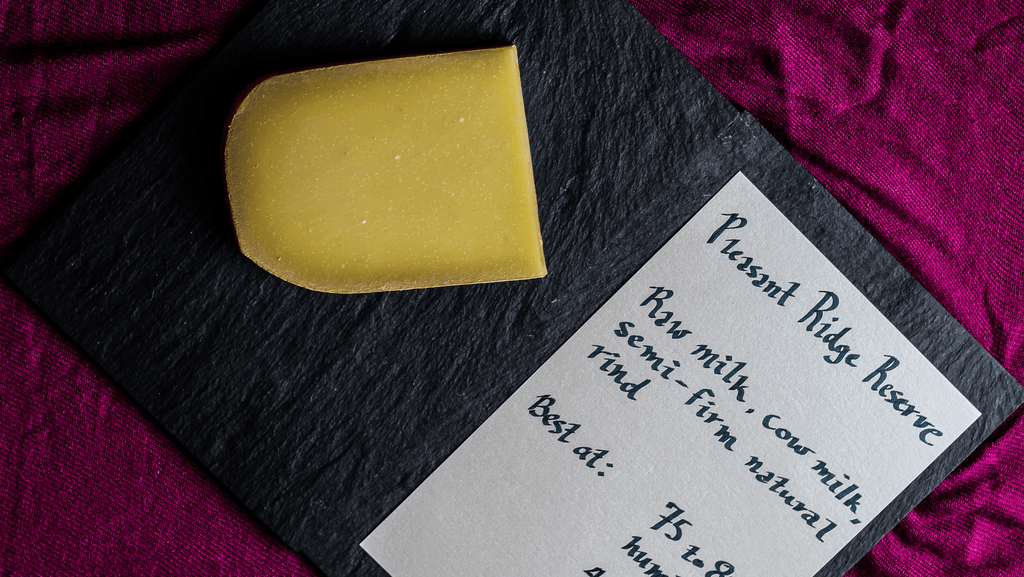 Pleasant Ridge Reserve
Raw milk, cow milk,
semi-firm natural
rind
Best at:
75 to 8
hum